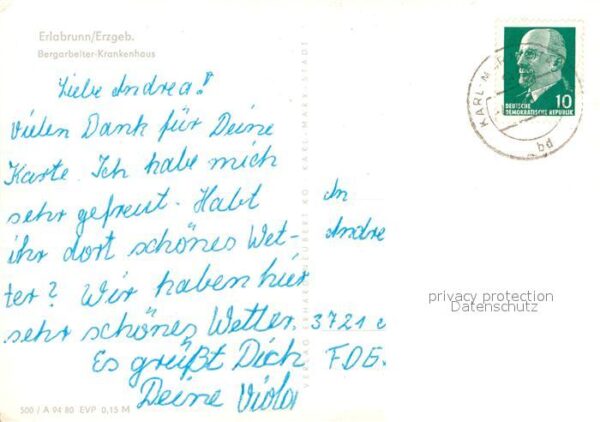 Erlabrunn/Erzgeb.
Bergarbeiter-Krankenhaus
Liebe Andrea!
Vielen Dank für Deine
Karte. Ich habe mich
sehr gefreut. Habt
ihr dort schönes Wet-
ter? Wir haben hier
sehr schönes Wetter.
Es grüßt Dich
Deine Viola
500 / A 94 80 EVP 0,15 M
KARL-MARX-STADT
DEUTSCHE
DEMOKRATISCHE REPUBLIK
10
KARL-M
bd
An
Andre
3721
privacy protection
Datenschutz